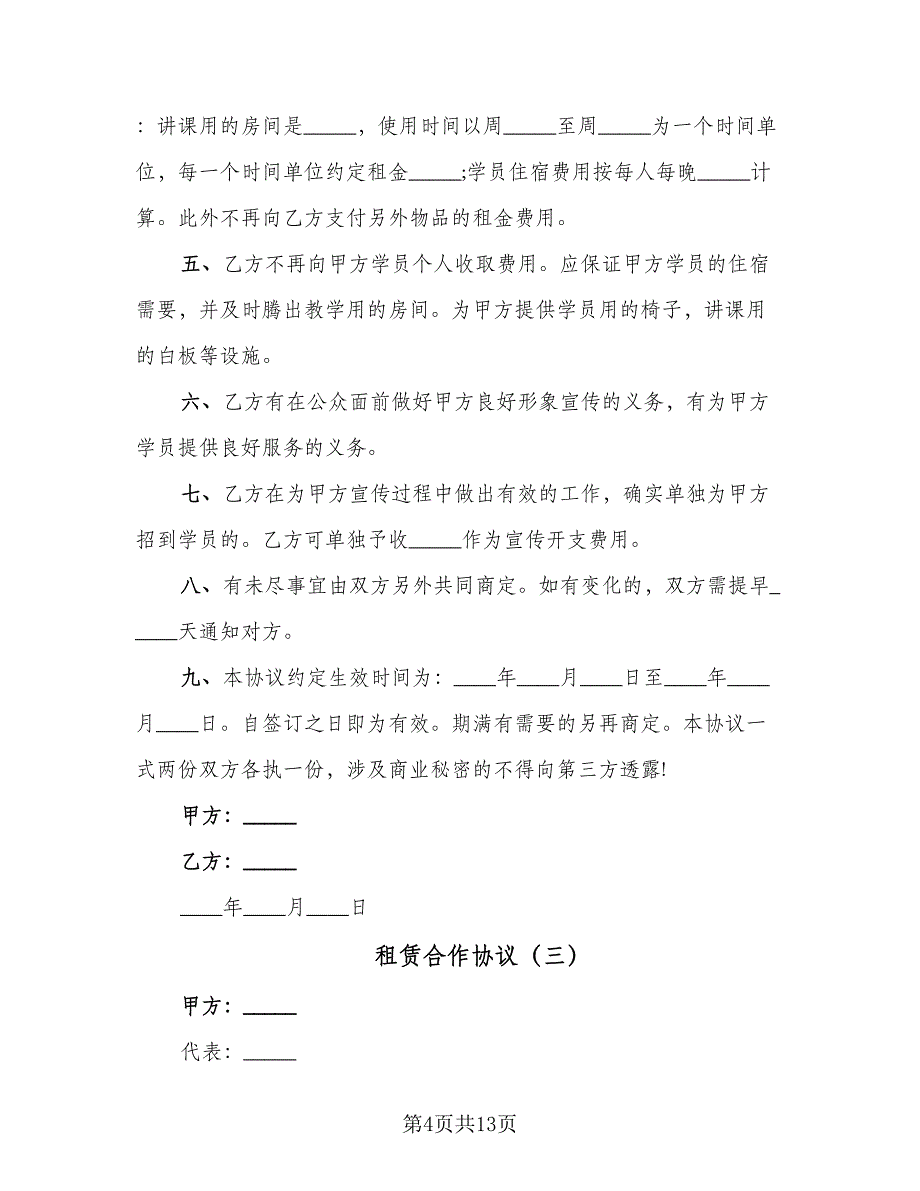 ：讲课用的房间是_____，使用时间以周_____至周_____为一个时间单
位，每一个时间单位约定租金_____;学员住宿费用按每人每晚_____计
算。此外不再向乙方支付另外物品的租金费用。
五、乙方不再向甲方学员个人收取费用。应保证甲方学员的住宿
需要，并及时腾出教学用的房间。为甲方提供学员用的椅子，讲课用
的白板等设施。
六、乙方有在公众面前做好甲方良好形象宣传的义务，有为甲方
学员提供良好服务的义务。
七、乙方在为甲方宣传过程中做出有效的工作，确实单独为甲方
招到学员的。乙方可单独予收_____作为宣传开支费用。
八、有未尽事宜由双方另外共同商定。如有变化的，双方需提早_
____天通知对方。
九、本协议约定生效时间为：____年____月____日至____年____
月____日。自签订之日即为有效。期满有需要的另再商定。本协议一
式两份双方各执一份，涉及商业秘密的不得向第三方透露!
甲方：_____
乙方：_____
____年____月____日
租赁合作协议（三）
甲方：_____
代表：_____
第4页共13页